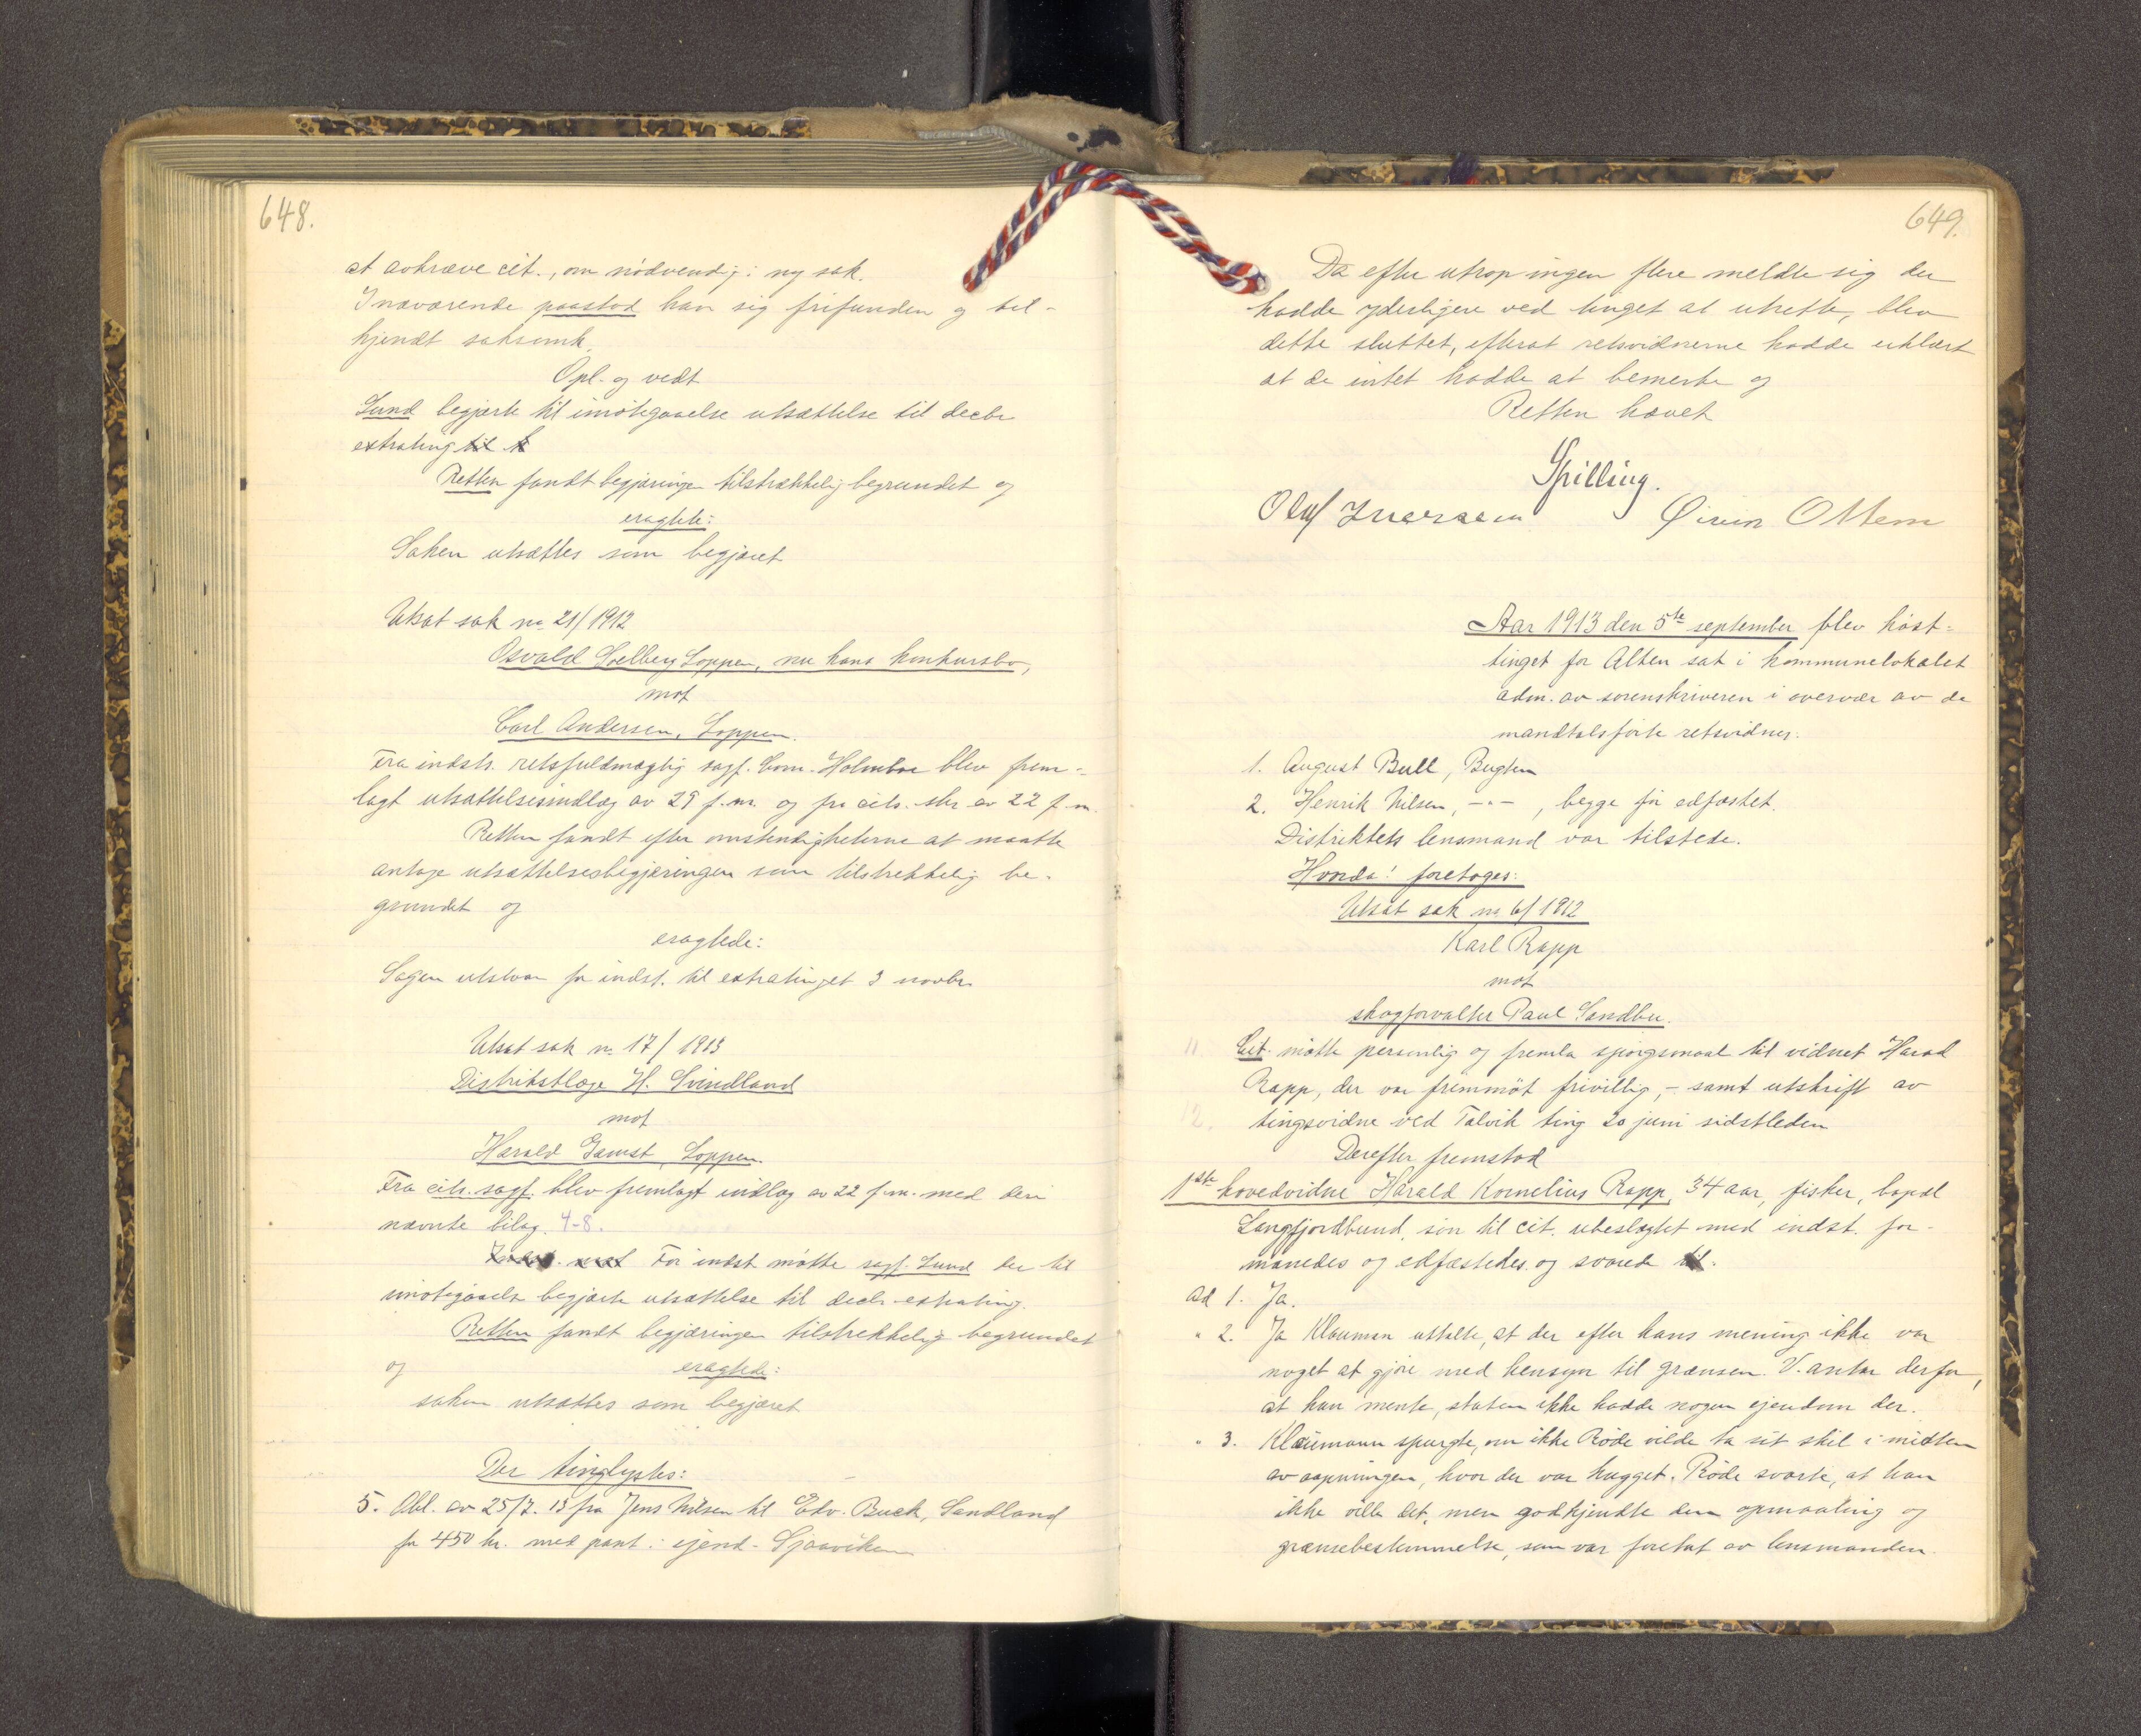 648.
at avkræve cit., om nödvendig i ny sak.
I nærværende paastod han sig frifunden og til-
kjendt saksomk.
Opl. og vedt
Lund begjærte til imötegaaelse utsættelse til decbr
extrating til
Retten fandt begjæringen tilstrækkelig begrundet og
eragtet:
Saken utsættes som begjæret
Utsat sak nr. 21/1912
Osvald Solberg Loppen, nu hans konkursbo,
mot
Carl Andersen, Loppen.
Fra indst. retsfuldmægtig sagf. Holmboe blev frem-
lagt utsættelsesindlæg av 29 f.m. og fra cits. skr av 22 f.m.
Retten fandt efter omstendigheterne at maatte
antage utsættelsesbegjæringen som tilstrekkelig be-
grundet og
eragtede:
Sagen utstaar for indst. til extratinget 3 novbr.
Utsat sak nr. 17/1913
Distriktslæge H. Svindland
mot
Harald Gamst, Loppen.
Fra cits. sagf. blev fremlagt indlæg av 22 f.m. med deri
nævnte bilag. 4-8.
For indst mötte sagf. Lund der til
imötegaaelse begjærte utsættelse til decbr extrating.
Retten fandt begjæringen tilstrekkelig begrundet
og eragtede:
saken utsættes som begjæret
Der tinglystes:
5. Obl. av 25/7. 13 fra Jens Nilsen til Edv. Buck, Sandland
for 450 kr. med pant i ejend. Sjaaviken
649.
Da efter utrop ingen flere meldte sig der
hadde yderligere ved tinget at utrette, blev
dette sluttet, efterat retsvidnerne hadde erklært
at de intet hadde at bemerke og
Retten hævet
Spilling.
Oluf Iversen Öivin Ottem
Aar 1913 den 5te september blev höst-
tinget for Alten sat i kommunelokalet
adm. av sorenskriveren i overvær av de
mandtalsförte retsvidner:
1. August Bull, Bugten
2. Henrik Nilsen, -"- , begge för edfæstet.
Distriktets lensmand var tilstede.
Hvorda! foretoges:
Utsat sak nr 6/1912
Karl Rapp
mot
skogforvalter Paul Sandbu.
11 Cit. mötte personlig og fremla spörgsmaal til vidnet Harad
Rapp, der var fremmöt frivillig, - samt utskrift av
12. tingsvidne ved Talvik ting 20 juni sidstleden
Derefter fremstod
1ste hovedvidne Harald Kornelius Rapp, 34 aar, fisker, bopæl
Langfjordbund, sön til cit. ubeslegtet med indst. for-
manedes og edfæstedes og svarede
ad 1. Ja.
" 2. Ja Klauman uttalte, at der efter hans mening ikke var
noget at gjöre med hensyn til grænsen. V. antar derfor,
at han mente, staten ikke hadde nogen ejendom der.
" 3. Klaumann spurgte, om ikke Röde vilde ta sit skil i midten
av aapningen, hvor der var hugget. Röde svarte, at han
ikke ville det, men godkjendte den opmaaling og
grænsebestemmelse, som var foretat av lensmanden.